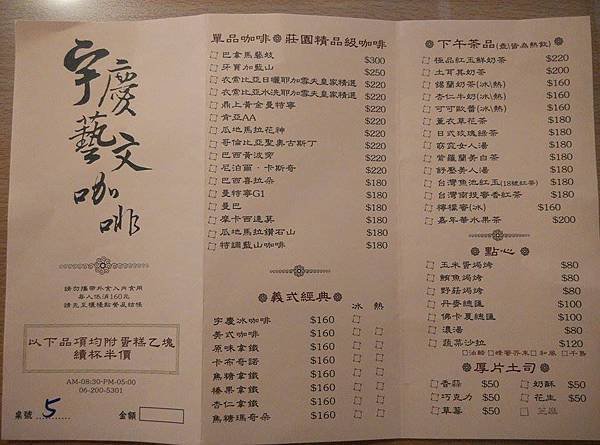 宇慶藝文咖啡
請勿攜帶外食入內食用
每人低消160元
請先至櫃檯點餐及結帳
以下品項均附蛋糕乙塊
續杯半價
AM-08:30-PM-05:00
06-200-5301
桌號 5 金額
單品咖啡 莊園精品級咖啡
巴拿馬藝妓 $300
牙買加藍山 $250
衣索比亞日曬耶加雪夫皇家精選 $220
衣索比亞水洗耶加雪夫皇家精選 $220
鼎上黃金曼特寧 $220
肯亞AA $220
瓜地馬拉花神 $220
哥倫比亞聖奧古斯丁 $220
巴西黃波旁 $220
尼泊爾·卡斯奇 $220
巴西喜拉朵 $180
曼特寧G1 $180
曼巴 $180
摩卡西達莫 $180
瓜地馬拉鑽石山 $180
特調藍山咖啡 $180
義式經典 冰 熱
宇慶冰咖啡 $160
美式咖啡 $160
原味拿鐵 $160
卡布奇諾 $160
焦糖拿鐵 $160
榛果拿鐵 $160
杏仁拿鐵 $160
焦糖瑪奇朵 $160
下午茶品(壺\皆為熱飲)
極品紅玉鮮奶茶 $220
土耳其奶茶 $200
錫蘭奶茶(冰\熱) $160
杏仁牛奶(冰\熱) $160
可可歐蕾(冰\熱) $160
薰衣草花茶 $180
日式玫瑰綠茶 $180
窈窕女人湯 $180
紫羅蘭美白茶 $180
舒壓美人湯 $180
台灣魚池紅玉(18號紅茶) $180
台灣南投蜜香紅茶 $180
檸檬蜜(冰) $160
嘉年華水果茶 $200
點心
玉米醬焗烤 $80
鮪魚焗烤 $80
野菇焗烤 $80
丹麥總匯 $100
佛卡夏總匯 $100
濃湯 $80
蔬菜沙拉 $120
油醋 蜂蜜芥末 和風 千島
厚片土司
香蒜 $50 奶酥 $50
巧克力 $50 花生 $50
草莓 $50 芝麻